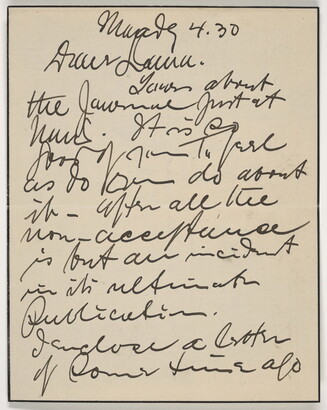 Monday 4.30
Dear Laura.
Yours about
the Journal just at
hand. It is so
good of you to feel
as do you do about
it - after all the
non-acceptance
is but an incident
in its ultimate
Publication.
I enclose a letter
of some time ago